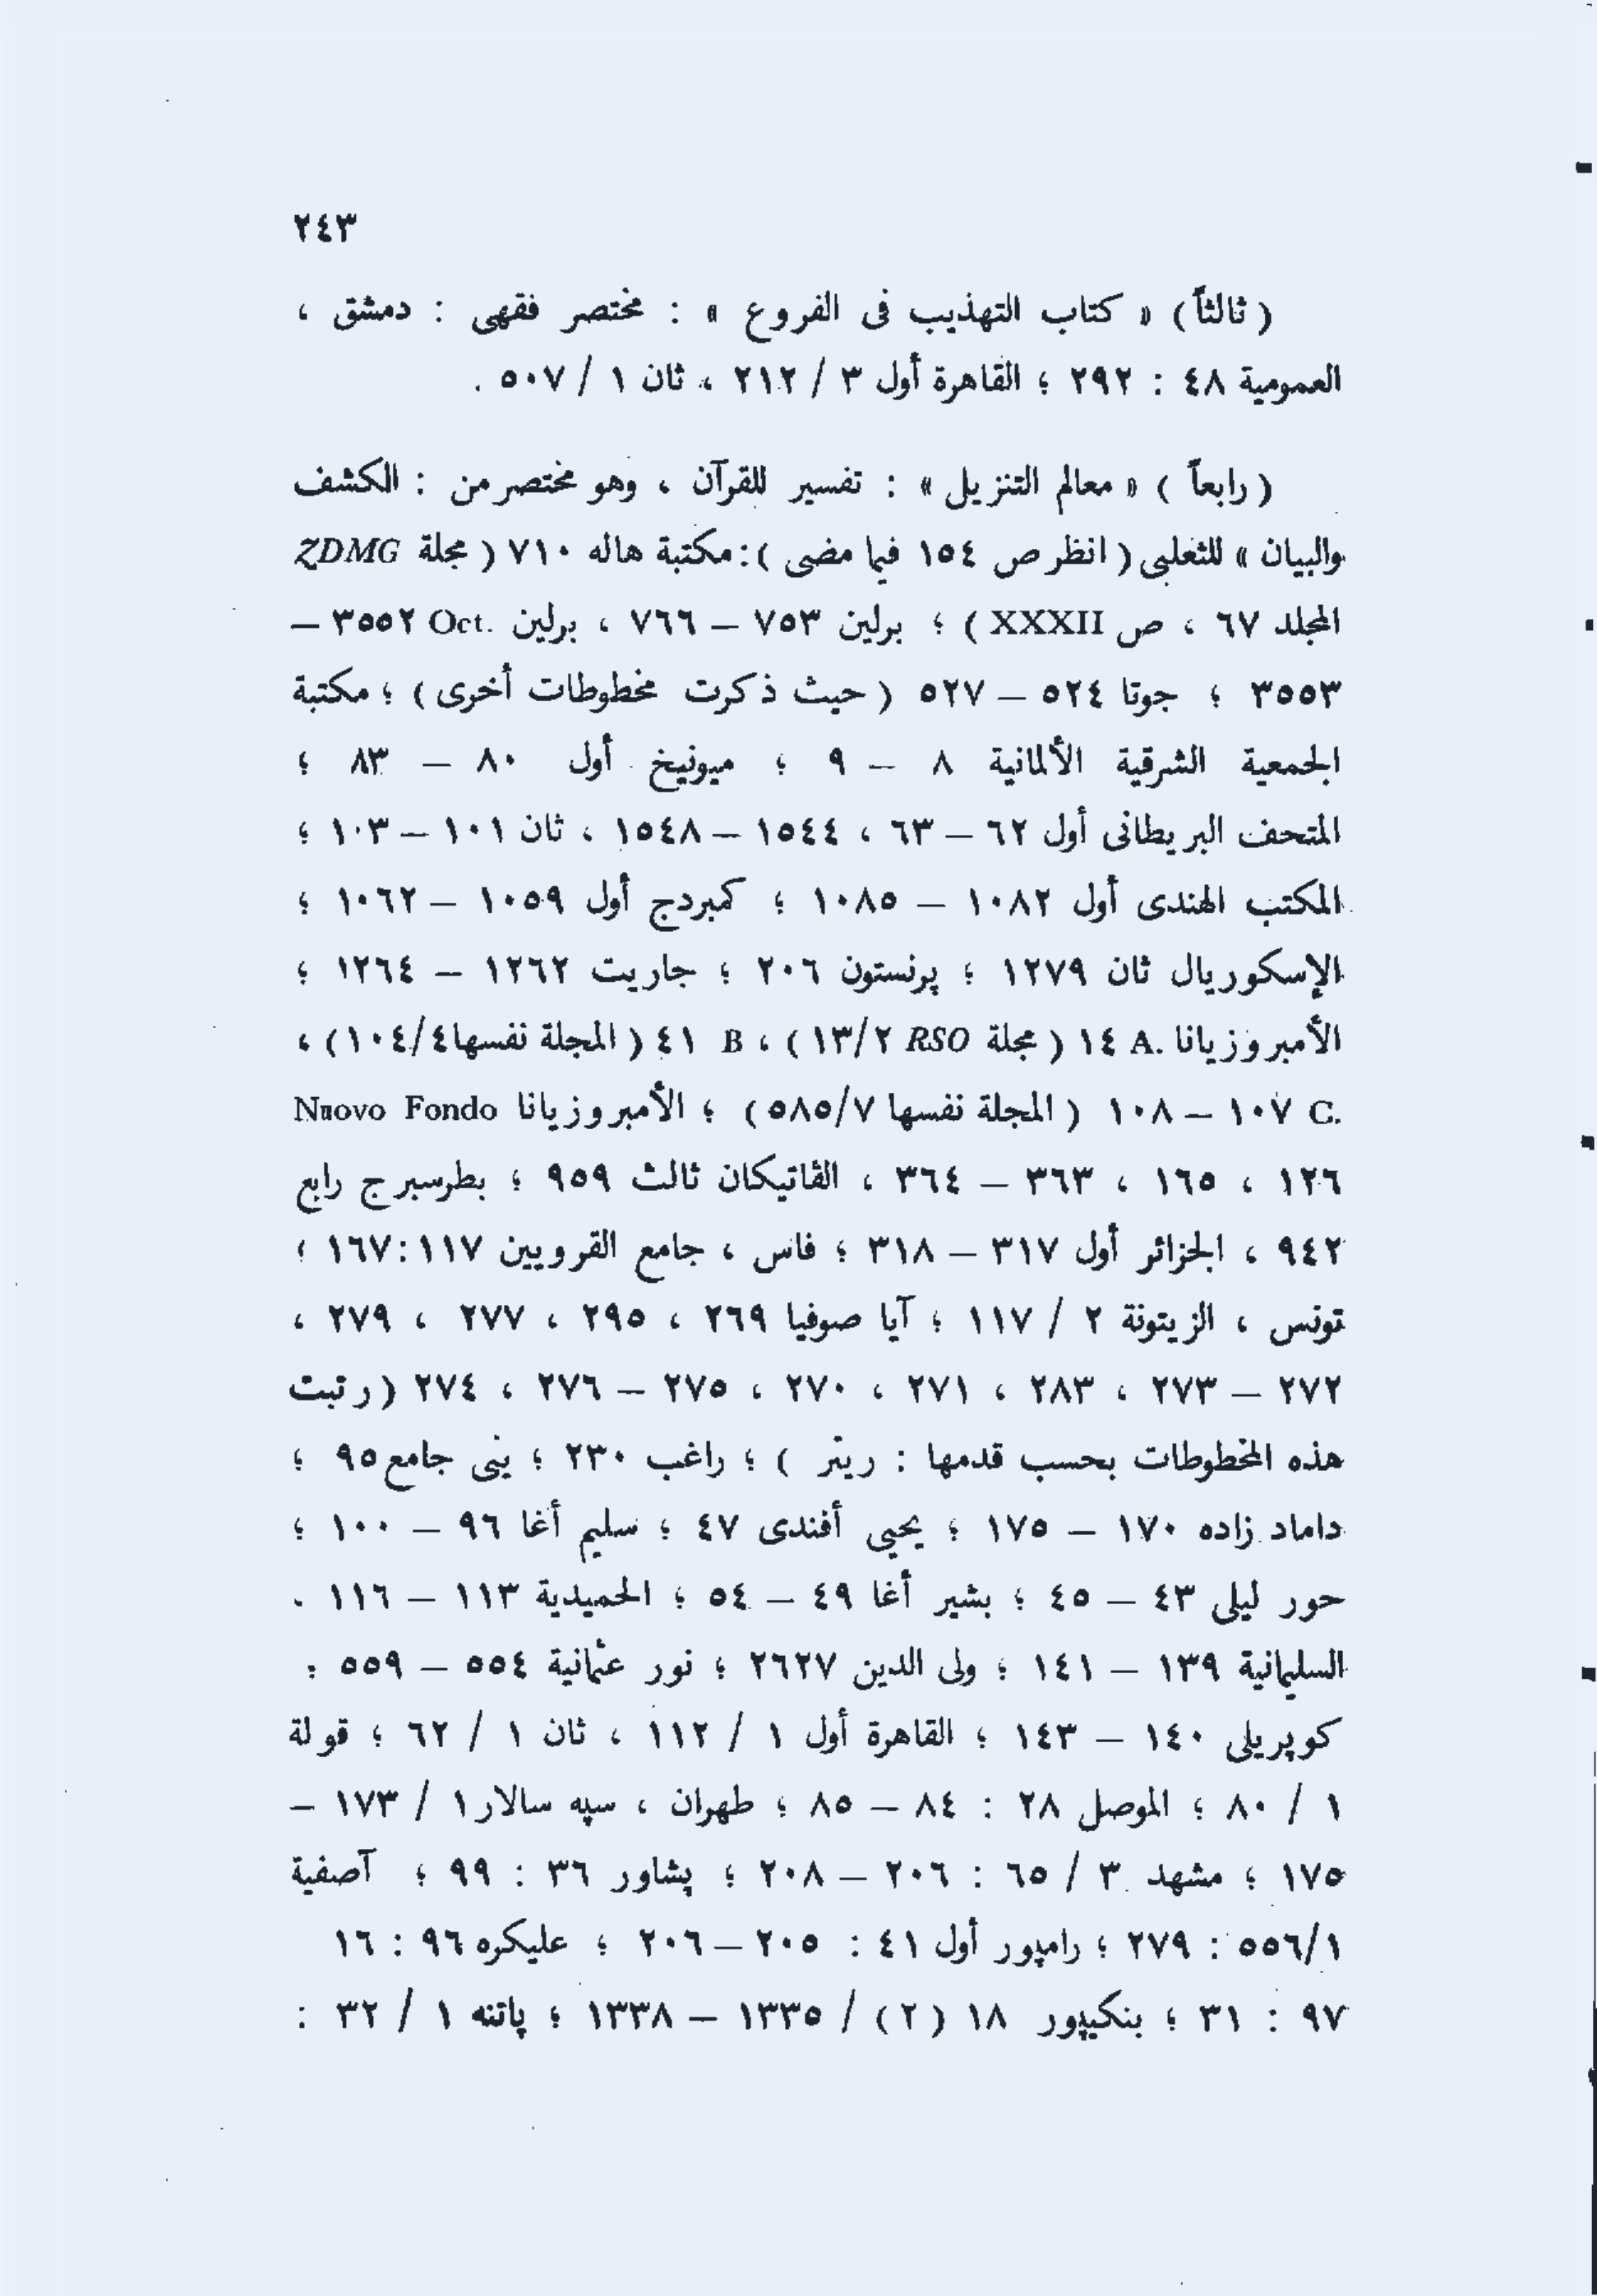 ٢٤٣
( ثالثاً ) « كتاب التهذيب فى الفروع » : مختصر فقهى : دمشق ،
العمومية ٤٨ : ٢٩٢ ؛ القاهرة أول ٣ / ٢١٢ ، ثان ١ / ٥٠٧ .
( رابعاً ) « معالم التنزيل » : تفسير للقرآن ، وهو مختصر من : الكشف
والبيان » للثعلبى ( انظر ص ١٥٤ فيما مضى ) : مكتبة هاله ٧١٠ ( مجلة ZDMG
المجلد ٦٧ ، ص XXXII ) ؛ برلين ٧٥٣ – ٧٦٦ ، برلين Oct. ٣٥٥٢ –
٣٥٥٣ ؛ جوتا ٥٢٤ – ٥٢٧ ( حيث ذكرت مخطوطات أخرى ) ؛ مكتبة
الجمعية الشرقية الألمانية ٨ – ٩ ؛ ميونيخ أول ٨٠ – ٨٣ ؛
المتحف البريطانى أول ٦٢ – ٦٣ ، ١٥٤٤ – ١٥٤٨ ، ثان ١٠١ – ١٠٣ ؛
المكتب الهندى أول ١٠٨٢ – ١٠٨٥ ؛ كمبردج أول ١٠٥٩ – ١٠٦٢ ؛
الإسكوريال ثان ١٢٧٩ ؛ پرنستون ٢٠٦ ؛ جاريت ١٢٦٢ – ١٢٦٤ ؛
الأمبروزيانا A. ١٤ ( مجلة RSO ١٣/٢ ) ، B ٤١ ( المجلة نفسها ١٠٤/٤ ) ،
C. ١٠٧ – ١٠٨ ( المجلة نفسها ٥٨٥/٧ ) ؛ الأمبروزيانا Nuovo Fondo
١٢٦ ، ١٦٥ ، ٣٦٣ – ٣٦٤ ، الڤاتيكان ثالث ٩٥٩ ؛ بطرسبرج رابع
٩٤٢ ، الجزائر أول ٣١٧ – ٣١٨ ؛ فاس ، جامع القرويين ١١٧ : ١٦٧ ؛
تونس ، الزيتونة ٢ / ١١٧ ؛ آيا صوفيا ٢٦٩ ، ٢٩٥ ، ٢٧٧ ، ٢٧٩ ،
٢٧٢ – ٢٧٣ ، ٢٨٣ ، ٢٧١ ، ٢٧٠ ، ٢٧٥ – ٢٧٦ ، ٢٧٤ ( رتبت
هذه المخطوطات بحسب قدمها : ريتر ) ؛ راغب ٢٣٠ ؛ ينى جامع ٩٥ ؛
داماد زاده ١٧٠ – ١٧٥ ؛ يحيى أفندى ٤٧ ؛ سليم أغا ٩٦ – ١٠٠ ؛
حور ليلى ٤٣ – ٤٥ ؛ بشير أغا ٤٩ – ٥٤ ؛ الحميدية ١١٣ – ١١٦ .
السليمانية ١٣٩ – ١٤١ ؛ ولى الدين ٢٦٢٧ ؛ نور عثمانية ٥٥٤ – ٥٥٩ ؛
كوپريلى ١٤٠ – ١٤٣ ؛ القاهرة أول ١ / ١١٢ ، ثان ١ / ٦٢ ؛ قولة
١ / ٨٠ ؛ الموصل ٢٨ : ٨٤ – ٨٥ ؛ طهران ، سپه سالار ١ / ١٧٣ –
١٧٥ ؛ مشهد ٣ / ٦٥ : ٢٠٦ – ٢٠٨ ؛ پشاور ٣٦ : ٩٩ ؛ آصفية
٥٥٦/١ : ٢٧٩ ؛ رامپور أول ٤١ : ٢٠٥ – ٢٠٦ ؛ عليكره ٩٦ : ١٦
٩٧ : ٣١ ؛ بنكيپور ١٨ ( ٢ ) / ١٣٣٥ – ١٣٣٨ ؛ پاتنه ١ / ٣٢ :